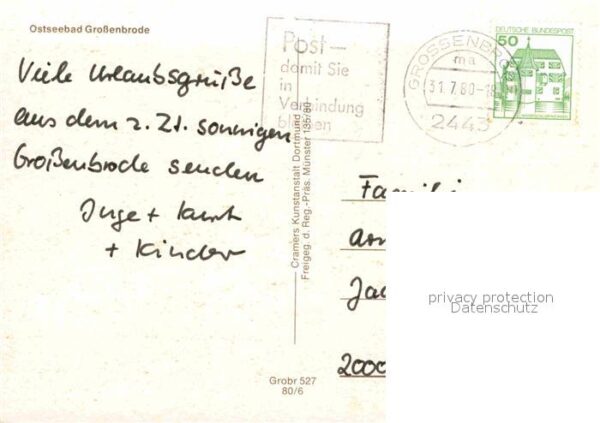 Ostseebad Großenbrode
Viele Urlaubsgrüße
aus dem z. Zt. sonnigen
Großenbrode senden
Inge + Kurt
+ Kinder
Post –
damit Sie
in
Verbindung
bleiben
GROSSENBRODE
ma
31.7.80-18
2443
DEUTSCHE BUNDESPOST
50
Cramers Kunstanstalt Dortmund
Freigeg. d. Reg.-Präs. Münster 135/80
Grobr 527
80/6
Familie
2000
privacy protection
Datenschutz